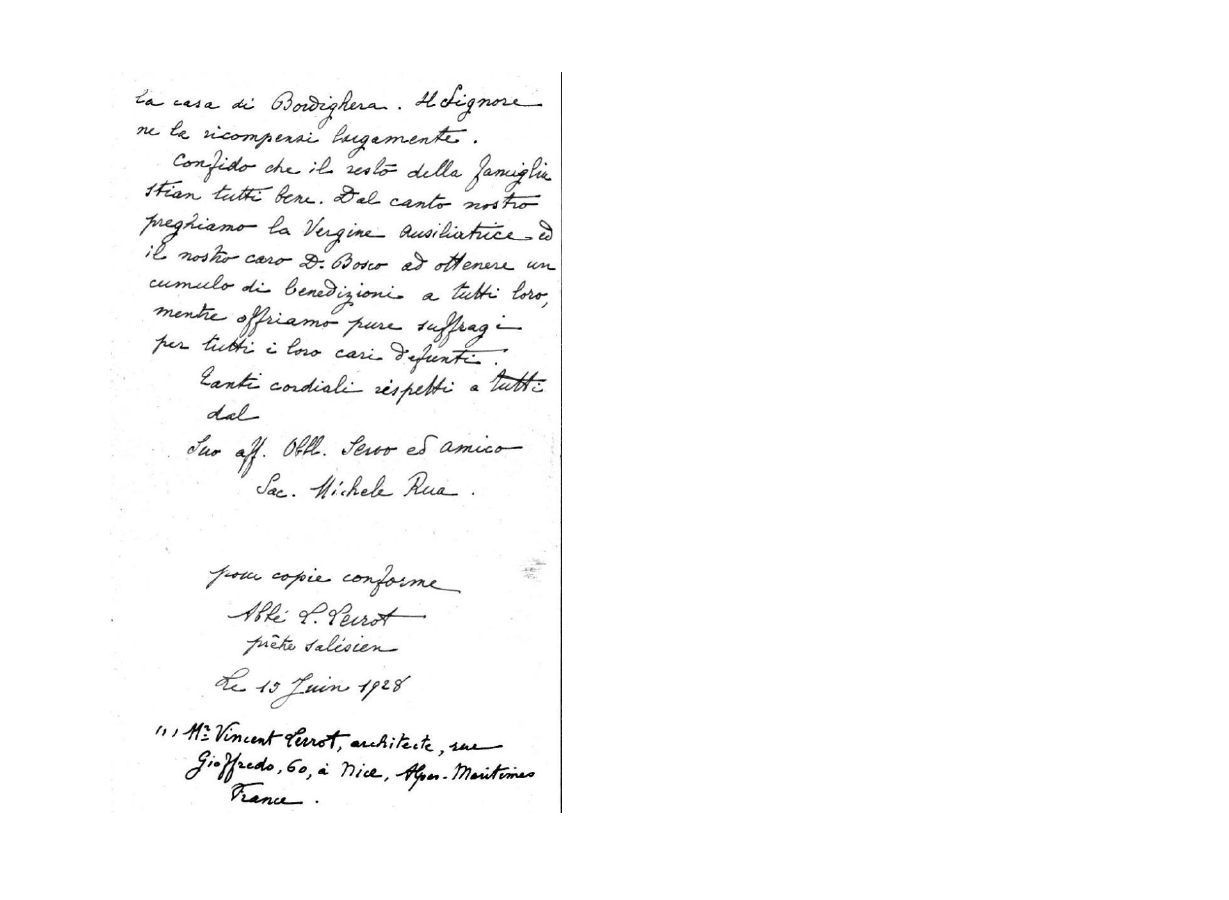 la casa di Bordighera. Il Signore
ne la ricompensi largamente.
Confido che il resto della famiglia
stian tutti bene. Dal canto nostro
preghiamo la Vergine Ausiliatrice ed
il nostro caro D. Bosco ad ottenere un
cumulo di benedizioni a tutti loro,
mentre offriamo pure suffragi
per tutti i loro cari defunti.
Tanti cordiali rispetti a tutti
dal
Suo aff. Obbl. Servo ed amico
Sac. Michele Rua.
pour copie conforme
Abbé L. Perrot
prêtre salésien
Le 15 Juin 1928
(1) Mr Vincent Perrot, architecte, rue
Gioffredo, 60, à Nice, Alpes-Maritimes
France.